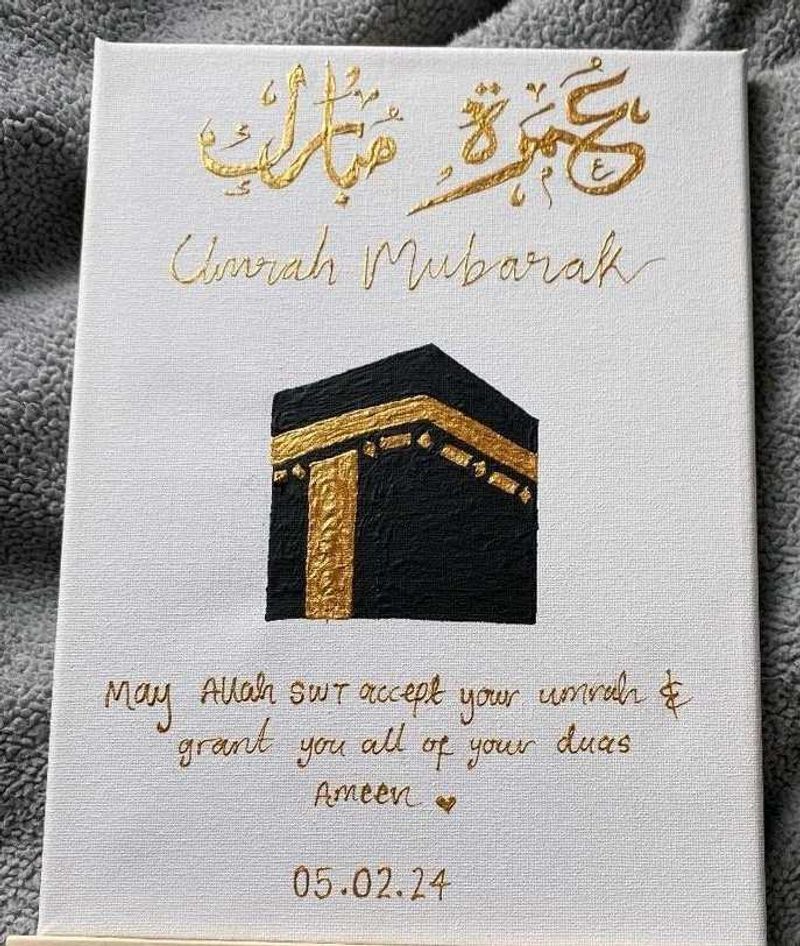 عمرة مبارك
Umrah Mubarak
May Allah SWT accept your umrah &
grant you all of your duas
Ameen ♥
05.02.24